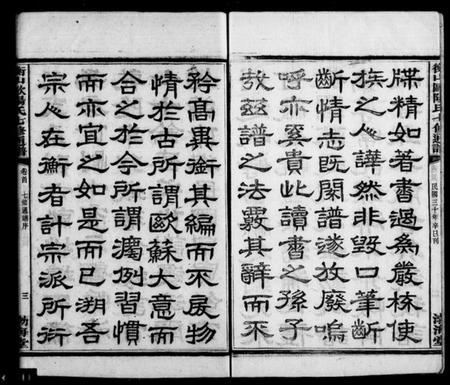 衡山歐陽氏七修通譜
民國三十年辛巳刊
渤海堂
牒精如著書過為嚴核使
族之人譁然非毀口筆齗
齗情志旣閡譜遂放廢嗚
呼亦奚貴此讀書之孫子
故茲譜之法覈其辭而不
矜高異銜其編而不戾物
情於古所謂歐蘇大意而
合之於今所謂濶例習慣
而亦宜之如是而已溯吾
宗人在衡者計宗派所衍
衡山歐陽氏七修通譜
卷首
七修通譜序
三
渤海堂